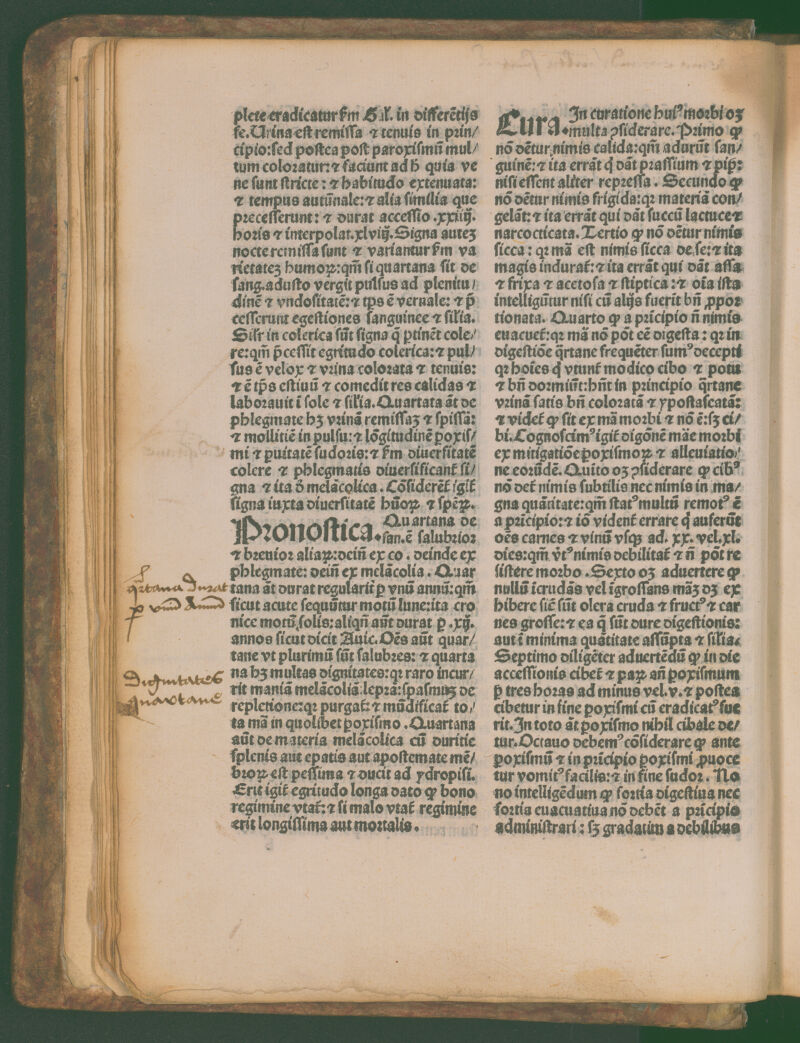 plete eradicatur ẜm Gal. in differētijs
fe. Urina est remissa ⁊ tenuis in prin/
cipio: sed postea post paroxismū mul/
tum coloratur: ⁊ faciunt ad h̄ quia ve
ne sunt stricte: ⁊ habitudo extenuata:
⁊ tempus autūnale: ⁊ alia similia que
precesserunt: ⁊ durat accessio .xxiiij.
horis ⁊ interpolat .xlviij. Signa auteꝫ
nocte remissa sunt ⁊ variantur ẜm va
rietateꝫ humoꝝ: qm̄ si quartana sit de
sang. adusto vergit pulsus ad plenitu/
dinē ⁊ vndositatē: ⁊ tp̄s ē vernale: ⁊ p̄
cesserunt egestiones sanguinee ⁊ silia.
Silr in colerica sūt signa q̄ ptinēt cole/
re: qm̄ p̄cessit egritudo colerica: ⁊ pul/
sus ē velox ⁊ vrina colorata ⁊ tenuis:
⁊ ē tp̄s estiuū ⁊ comedit res calidas ⁊
laborauit ī sole ⁊ silia. Quartata āt de
phlegmate hꝫ vrinā remissaꝫ ⁊ spissā:
⁊ mollitiē in pulsu: ⁊ lōgitudinē poxis/
mi ⁊ puitatē sudoris: ⁊ ẜm diuersitatē
colere ⁊ phlegmatis diuersificant̄ si/
gna ⁊ ita d̄ melācolica. Cōsideret̄ igit̄
signa iuxta diuersitatē hūoꝝ ⁊ sp̄eꝝ.
Pronostica. Quartana de
san. ē salubrior
⁊ breuior aliaꝝ: dein̄ ex co. deinde ex
phlegmate: dein̄ ex melācolia. Quar
tana āt durat regularit̄ p vnū annū: qm̄
sicut acute sequūtur motū lune: ita cro
nice motū solis: aliqn̄ aūt durat p .xij.
annos sicut dicit Auic. Oēs aūt quar/
tane vt plurimū sūt salubres: ⁊ quarta
na hꝫ multas dignitates: qꝛ raro incur/
rit maniā melācoliā leprā: spasmuꝫ de
repletione: qꝛ purgat̄: ⁊ mūdificat̄ to/
ta mā in quolibet poxismo. Quartana
aūt de materia melācolica cū duritie
splenis aut epatis aut apostemate mē/
broꝝ est pessima ⁊ ducit ad ydropisi.
Erit igit̄ egritudo longa dato ꝙ bono
regimine vtat̄: ⁊ si malo vtat̄ regimine
erit longissima aut mortalis.
qrtana durat
p vnū Annū
Dignitates
quartane
Cura. In curatione huiꝰ morbi oꝫ
multa ꝯsiderare. Primo ꝙ
nō dētur nimis calida: qm̄ adurūt san/
guinē: ⁊ ita errāt q̄ dāt prassium ⁊ pip̄:
nisi essent aliter repressa. Secundo ꝙ
nō dētur nimis frigida: qꝛ materiā con/
gelāt: ⁊ ita errāt qui dāt succū lactuce ⁊
narcocticata. Tertio ꝙ nō dētur nimis
sicca: qꝛ mā est nimis sicca de se: ⁊ ita
magis indurat̄: ⁊ ita errāt qui dāt assa
⁊ frixa ⁊ acetosa ⁊ stiptica: ⁊ oīa ista
intelligūtur nisi cū alijs fuerit bn̄ ꝓpor
tionata. Quarto ꝙ a prīcipio n̄ nimis
euacuet̄: qꝛ mā nō pōt eē digesta: qꝛ in
digestiōe qrtane frequēter sumꝰ decepti
qꝛ hoīes q̄ vtunt̄ modico cibo ⁊ potu
⁊ bn̄ dormiūt: hn̄t in principio qrtane
vrinā satis bn̄ coloratā ⁊ ypostasēatā:
⁊ videt̄ ꝙ sit ex mā morbi ⁊ nō ē: sꝫ ci/
bi. Cognoscimꝰ igit̄ digōnē māe morbi
ex mitigatiōe poxismoꝝ ⁊ alleuiatio/
ne eorūdē. Quīto oꝫ ꝯsiderare ꝙ cibꝰ
nō det̄ nimis subtilis nec nimis in ma/
gna quātitate: qm̄ statꝰ multū remotꝰ ē
a prīcipio: ⁊ iō vident̄ errare q̄ auferūt
oēs carnes ⁊ vinū vsqꝫ ad .xx. vel .xl.
dies: qm̄ v̄tꝰ nimis debilitat̄ ⁊ n̄ pōt re
sistere morbo. Sexto oꝫ aduertere ꝙ
nullū īcrudās vel īgrossans māꝫ dꝫ ex
hibere siē sūt olera cruda ⁊ fructꝰ ⁊ car
nes grosse: ⁊ ea q̄ sūt dure digestionis:
aut ē minima quātitate assūpta ⁊ silia.
Septimo diligēter aduertēdū ꝙ in die
accessionis cibet̄ ⁊ paꝝ an̄ poxismum
p̄ tres horas ad minus vel .v. ⁊ postea
cibetur in fine poxismi cū eradicatꝰ fue
rit. In toto āt poxismo nihil cibale de/
tur. Octauo debemꝰ cōsiderare ꝙ ante
poxismū ⁊ in prīcipio poxismi ꝓuoce
tur vomitꝰ facilis: ⁊ in fine sudor. No
no intelligēdum ꝙ fortia digestiua nec
fortia euacuatiua nō debēt a prīcipio
administrari: sꝫ gradatim a debilibus